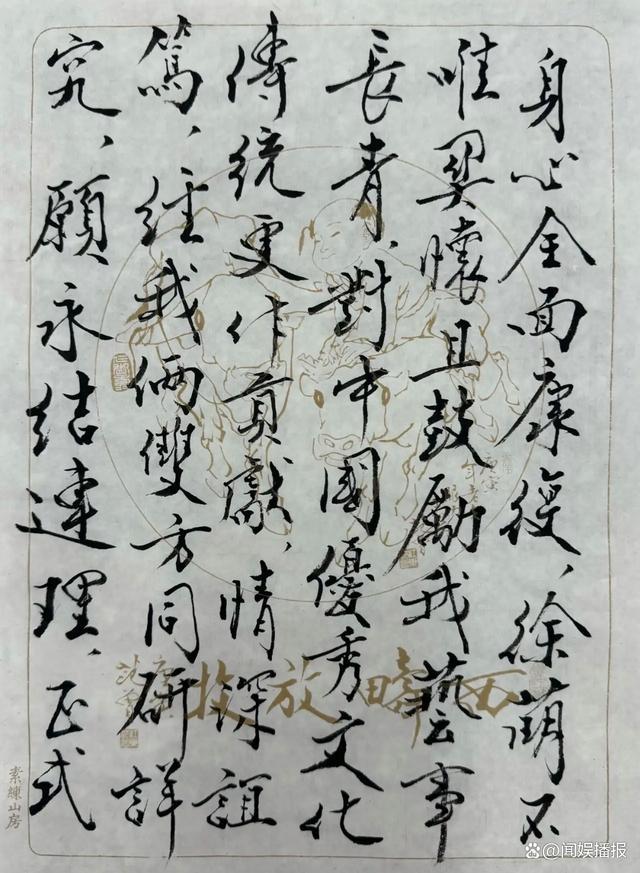 身心全面康復、徐萌不
唯関懷且鼓勵我藝事
長青、對中國優秀文化
傳統更作貢獻、情深誼
篤、經我倆雙方同研詳
究、願永结連理、正式
西疇放牧
范曾
素練山房
@闻娱播报